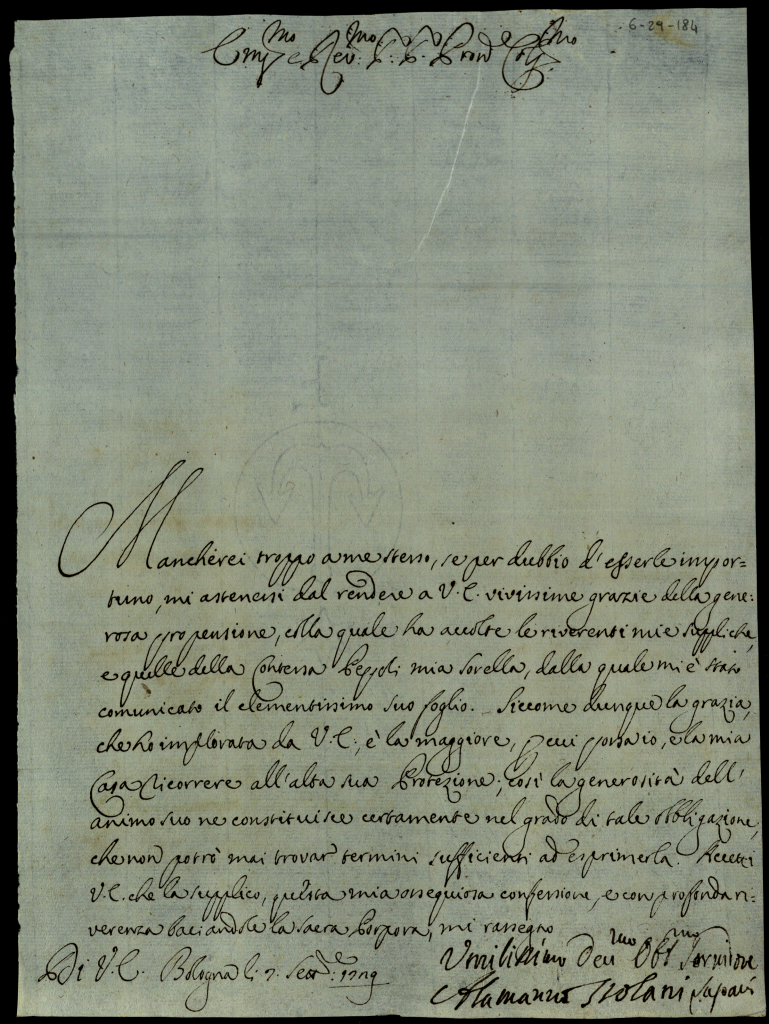 6-29-184
Em.mo e Rev.mo P. P. Pron Col.mo
Mancherei troppo a me stesso, se per dubbio d'esserle impor=
tuno, mi astenessi dal rendere a V.E. vivissime grazie della gene=
rosa propensione, colla quale ha accolte le riverenti mie suppliche,
e quelle della Contessa Peppoli mia sorella, dalla quale mi è stato
comunicato il clementissimo suo foglio. Siccome dunque la grazia,
che ho implorata da V.E., è la maggiore, p cui possa io, e la mia
Casa ricorrere all'alta sua Protezione; così la generosità dell'
animo suo ne constituisce certamente nel grado di tale obbligazione,
che non potrò mai trovar termini sufficienti ad esprimerla. Accetti
V.E. che la supplico, questa mia ossequiosa confessione, e con profonda ri=
verenza baciandole la sacra Porpora, mi rassegno
Di V.E. Bologna li 7. Sett.e 1729
Umilissimo Deu.mo Obl.mo Servitore
Alamanno Isolani